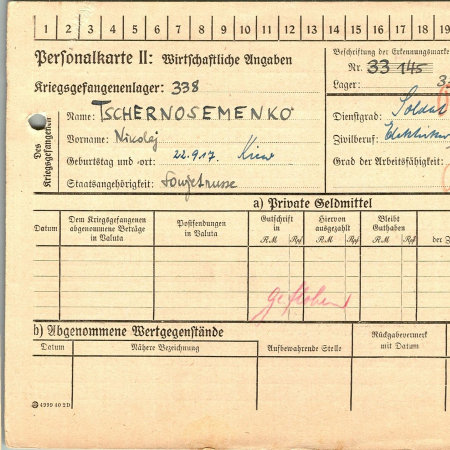 1 2 3 4 5 6 7 8 9 10 11 12 13 14 15 16 17 18 19
Personalkarte II: Wirtschaftliche Angaben
Beschriftung der Erkennungsmarke
Nr. 33 145
Kriegsgefangenenlager: 338
Lager:
Des Kriegsgefangenen
Name: TSCHERNOSEMENKO
Dienstgrad: Soldat
Vorname: Nikolej
Zivilberuf:
Geburtstag und -ort: 22.9.17. Kiew
Grad der Arbeitsfähigkeit:
Staatsangehörigkeit: Sowjetrusse
a) Private Geldmittel
Datum
Dem Kriegsgefangenen abgenommene Beträge in Valuta
Postsendungen in Valuta
Gutschrift in
RM Rpf
Hiervon ausgezahlt
RM Rpf
Bleibt Guthaben
RM Rpf
der
geflohen
b) Abgenommene Wertgegenstände
Datum
Nähere Bezeichnung
Aufbewahrende Stelle
Rückgabevermerk mit Datum
4299 40 2D